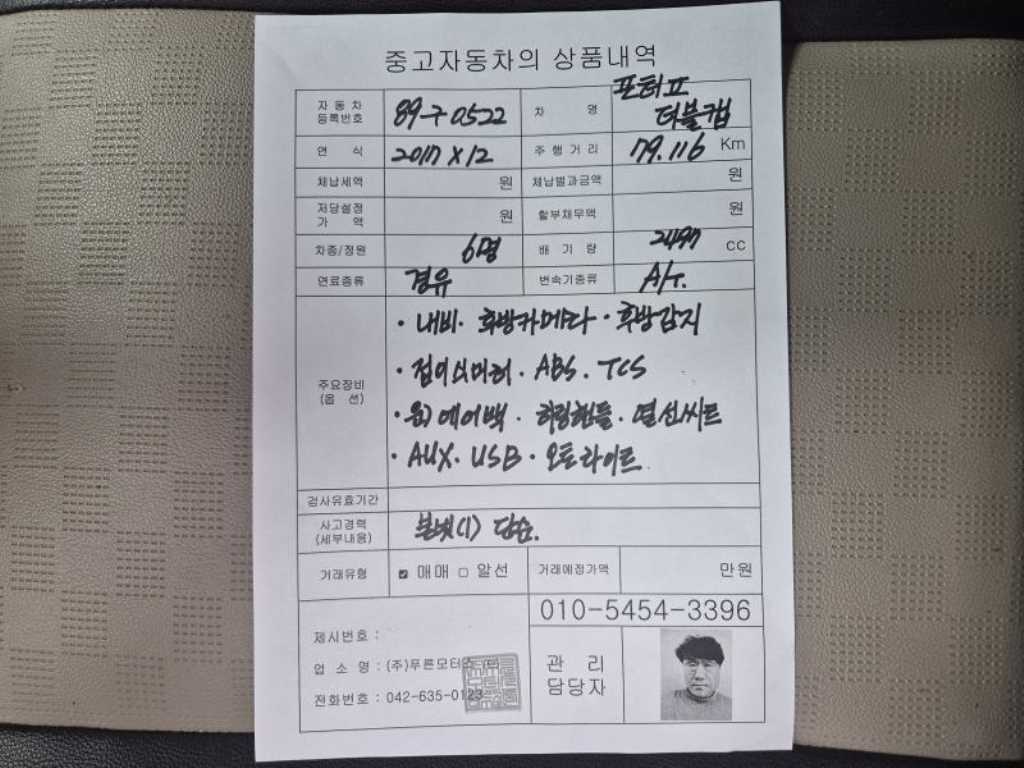 중고자동차의 상품내역
자 동 차 등록번호 89구0522 차 명 포터Ⅱ 더블캡
연 식 2017 X 12 주 행 거 리 79.116 Km
체납세액 원 체납범과금액 원
저당설정 가 액 원 할부채무액 원
차종/정원 6명 배 기 량 2497 CC
연료종류 경유 변속기종류 A/T.
주요장비 (옵 션)
· 내비· 후방카메라 · 후방감지
· 접이식미러 · ABS · TCS
· 운) 에어백 · 히팅핸들 · 열선시트
· AUX · USB · 오토라이트
검사유효기간
사고경력 (세부내용) 본넷(1) 단순.
거래유형 ☑ 매매 □ 알선 거래예정가액 만원
010-5454-3396
제시번호 :
업 소 명 : (주)푸른모터스
전화번호 : 042-635-0123
관 리 담당자